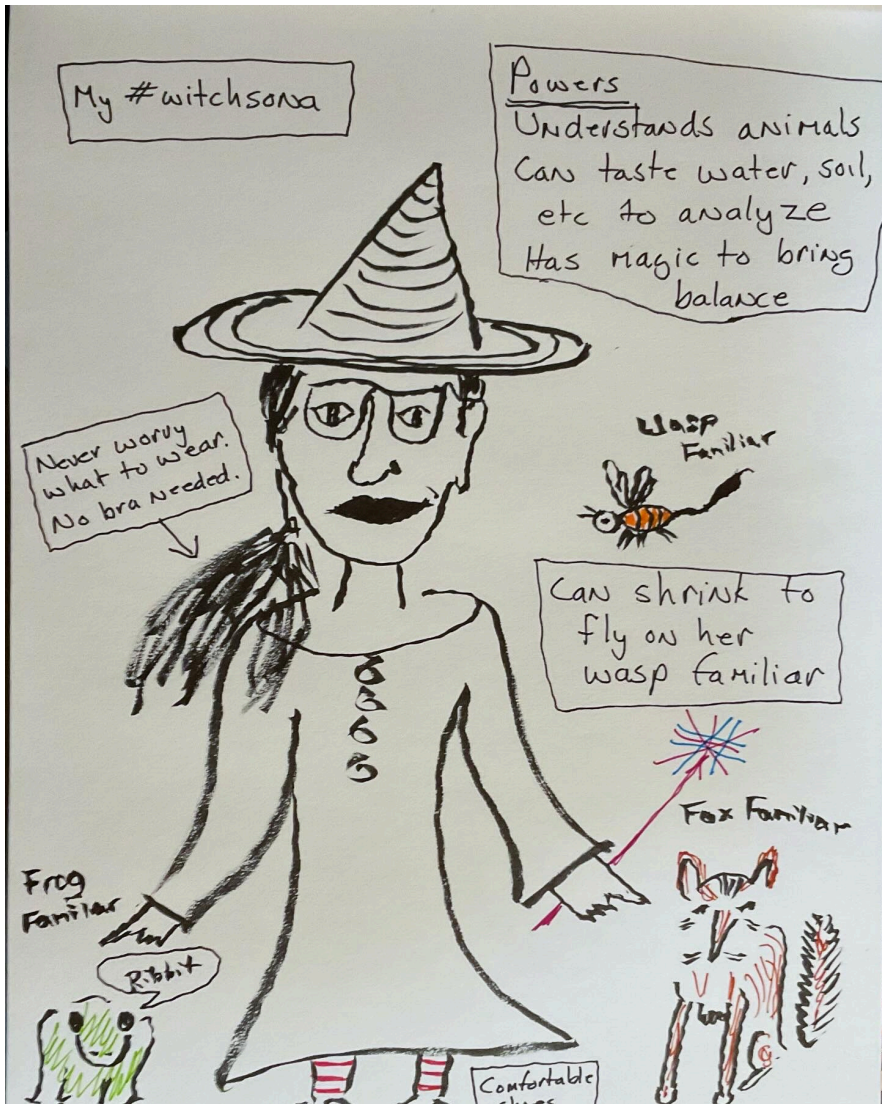 My #witchsona
Powers
Understands animals
Can taste water, soil,
etc to analyze
Has magic to bring
balance
Never worry
what to wear.
No bra needed.
Wasp
Familiar
Can shrink to
fly on her
wasp familiar
Fox Familiar
Frog
Familiar
Ribbit
Comfortable
shoes